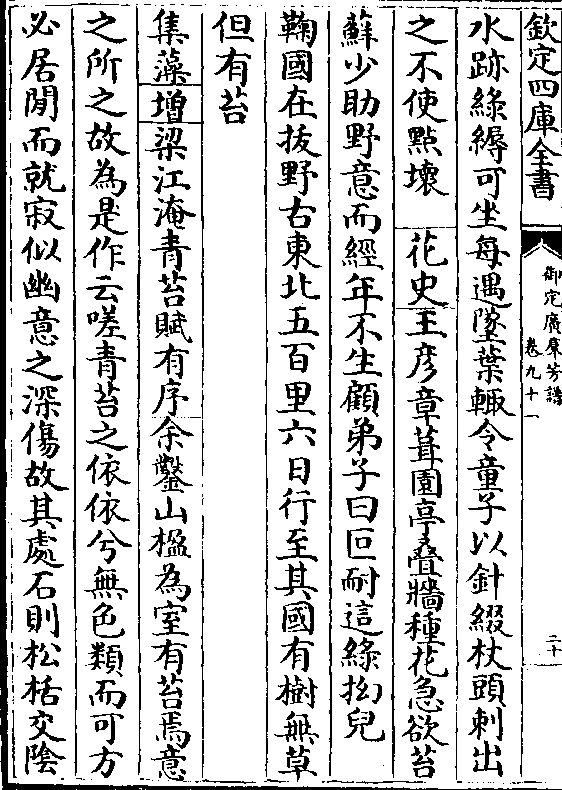 欽定四庫全書
御定廣羣芳譜
卷九十一
二十
水跡綠縟可坐每遇墜葉輒令童子以針綴杖頭刺出
之不使點壞 花史王彥章葺園亭疊牆種花急欲苔
蘇少助野意而經年不生顧弟子曰叵耐這綠拗兒
鞠國在拔野古東北五百里六日行至其國有樹無草
但有苔
集藻增梁江淹青苔賦有序余鑿山楹為室有苔焉意
之所之故為是作云嗟青苔之依依兮無色類而可方
必居閒而就寂似幽意之深傷故其處石則松栝交陰